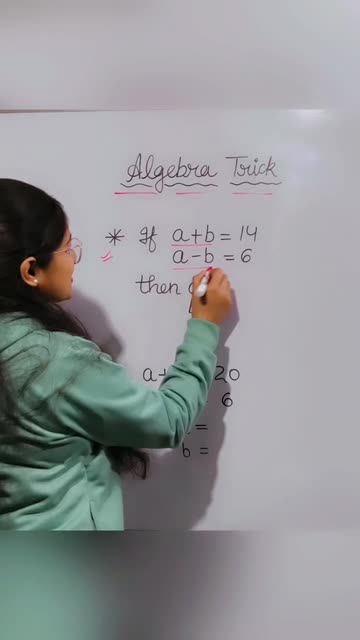 Algebra Trick
* If a+b = 14
a-b = 6
then
20
6
=
b =